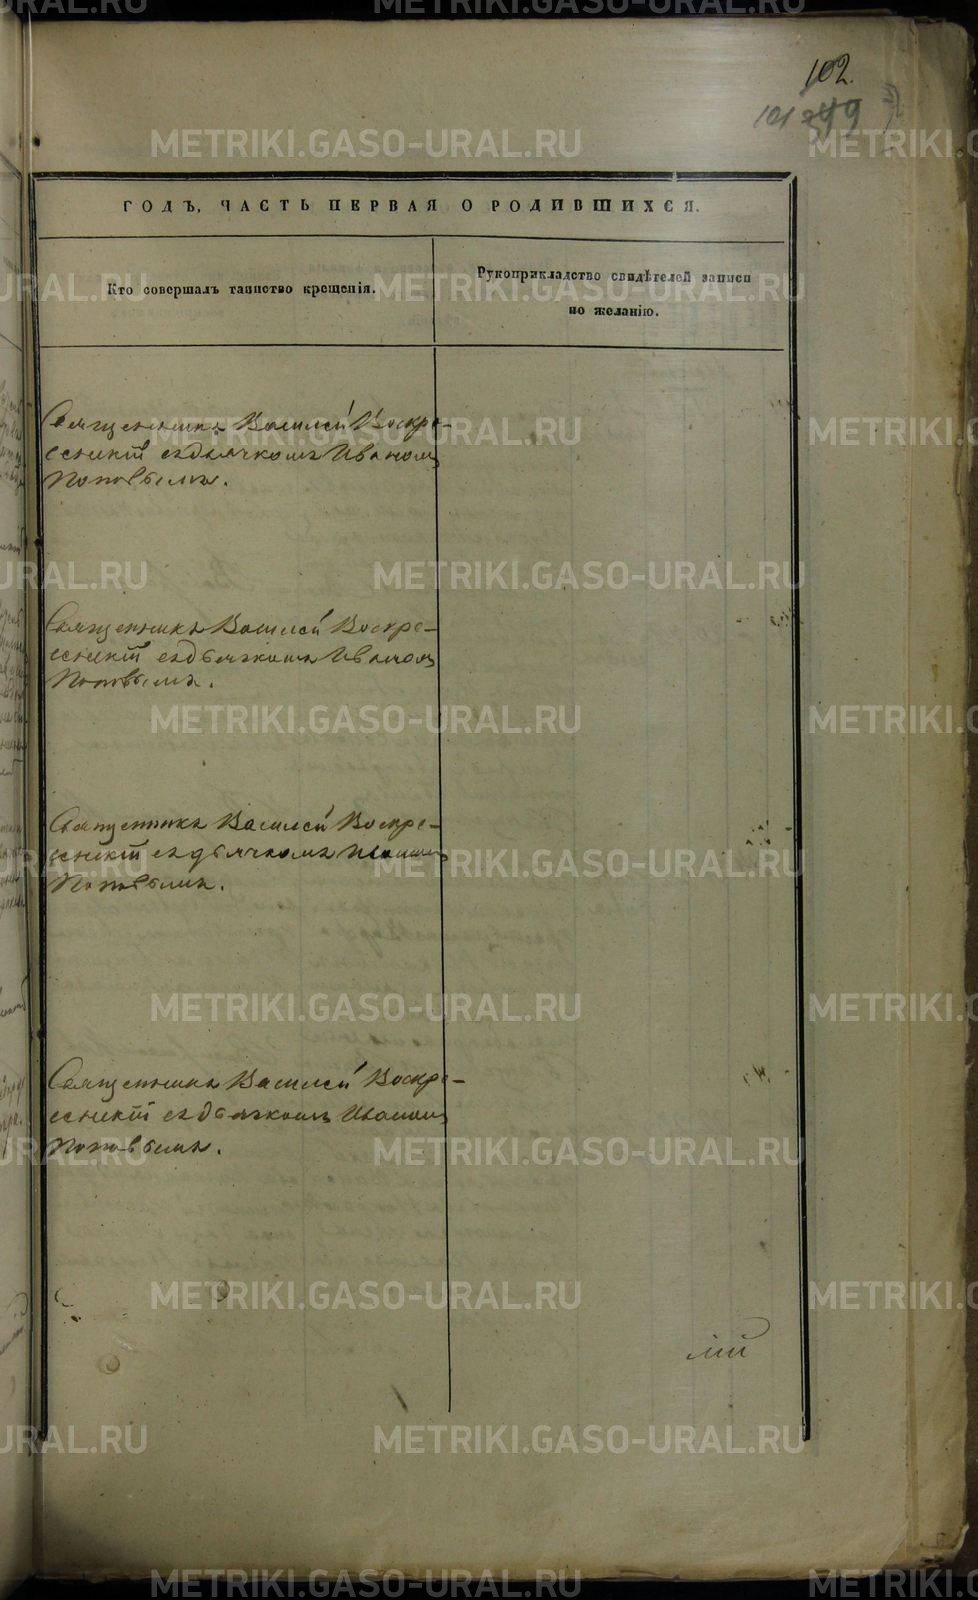 102.
101
ГОДЪ, ЧАСТЬ ПЕРВАЯ О РОДИВШИХСЯ.
Кто совершалъ таинство крещенія.
Рукоприкладство свидѣтелей записи
по желанію.
Священникъ Василей Воскре-
сенскій съ дьячкомъ Иваномъ
Поповымъ.
Священникъ Василей Воскре-
сенскій съ дьячкомъ Иваномъ
Поповымъ.
Священникъ Василей Воскре-
сенскій съ дьячкомъ Иваномъ
Поповымъ.
Священникъ Василей Воскре-
сенскій съ дьячкомъ Иваномъ
Поповымъ.
лій
METRIKI.GASO-URAL.RU